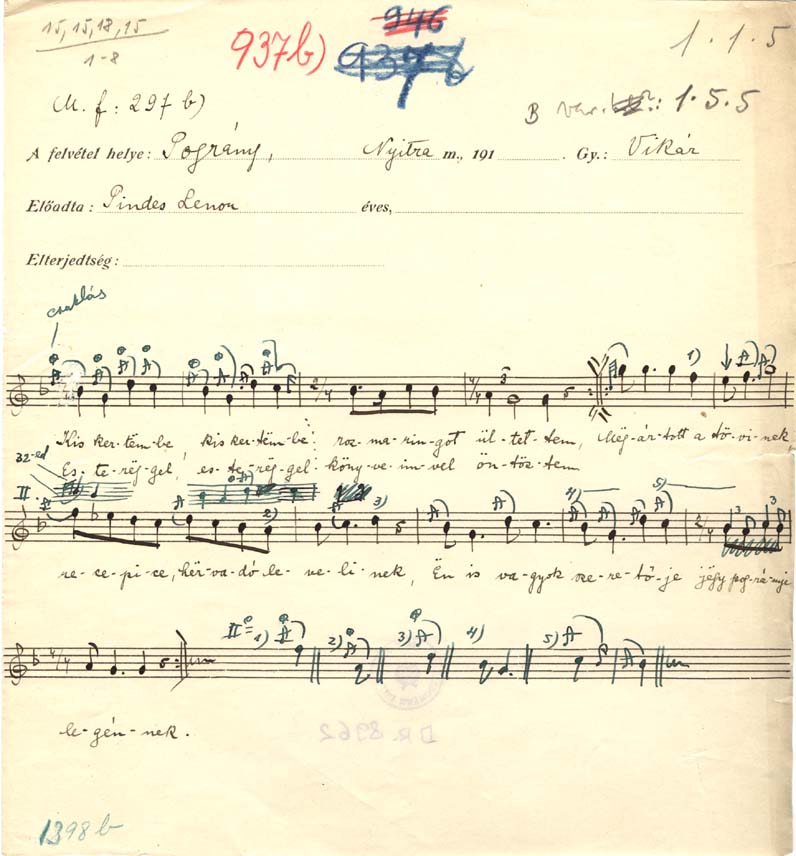 15, 15, 18, 15
1-8
937b)
946
937b
1.1.5
M. f: 297 b)
B var. 1.5.5
A felvétel helye: Pográny, Nyitra m., 191 . Gy.: Vikár
Előadta: Pindes Lenou éves,
Elterjedtség:
csuklás
2/4 4/4 3 5 1)
Kis ker-tëm-be kis ker-tëm-be: roz-ma-rin-got ül-tet-tem, Mëg-ár-tott a tö-vi-nek,
Es-te-rég-gel, es-te-rég-gel: köny-ve-im-vel ön-töz-tem
32-ed
II. 2) 3) 4) 5) 2/4 3 3
re-ce-pi-ce, hër-va-dó le-ve-li-nek, Ën is va-gyok sze-re-tő-je jëgy pog-rá-nyi
4/4 5 II= 1) 2) 3) 4) 5)
le-gén-nek.
DR 8962
1398b